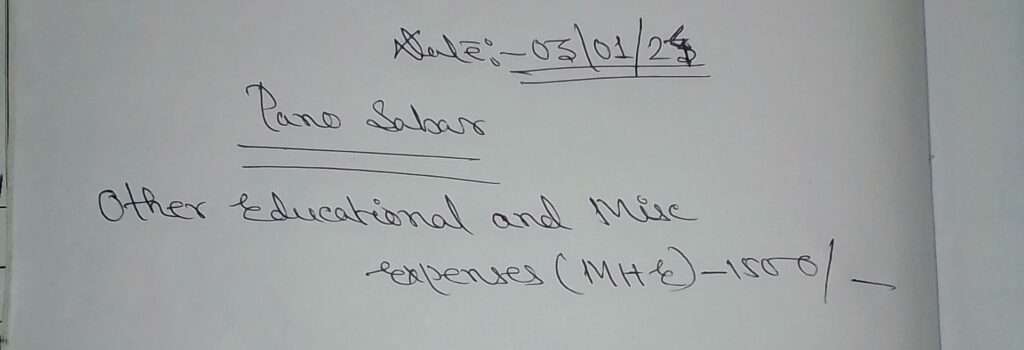 Date:- 03/01/25
Pano Sabar
Other Educational and Misc
expenses (MHE) - 1500/-